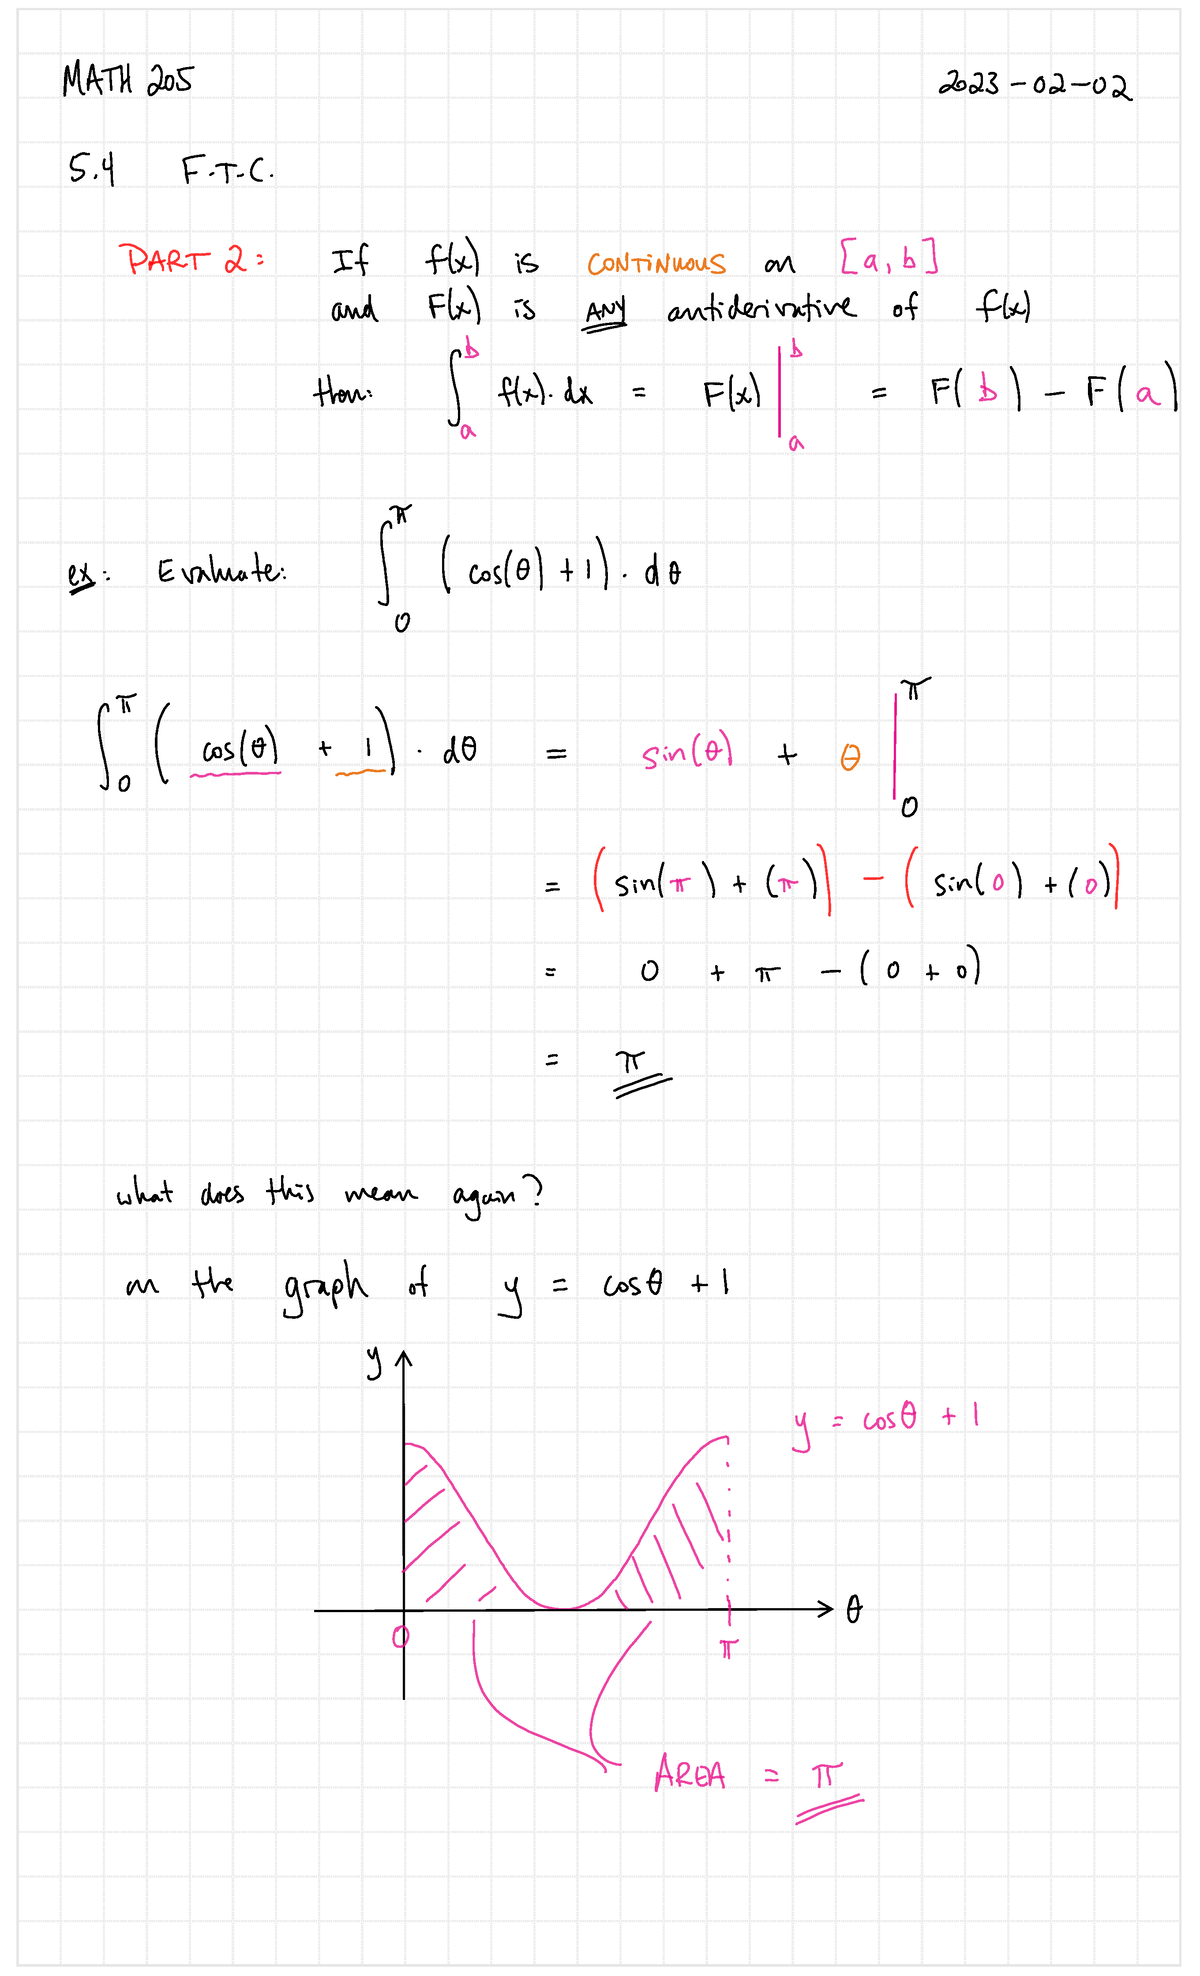 MATH 205 2023-02-02
5.4 F.T.C.
PART 2: If f(x) is CONTINUOUS on [a, b]
and F(x) is ANY antiderivative of f(x)
then: ∫_a^b f(x)·dx = F(x) |_a^b = F(b) - F(a)
ex: Evaluate: ∫_0^π (cos(θ) + 1)·dθ
∫_0^π (cos(θ) + 1)·dθ = sin(θ) + θ |_0^π
= (sin(π) + (π)) - (sin(0) + (0))
= 0 + π - (0 + 0)
= π
what does this mean again?
on the graph of y = cosθ + 1
y
y = cosθ + 1
θ
0 π
AREA = π